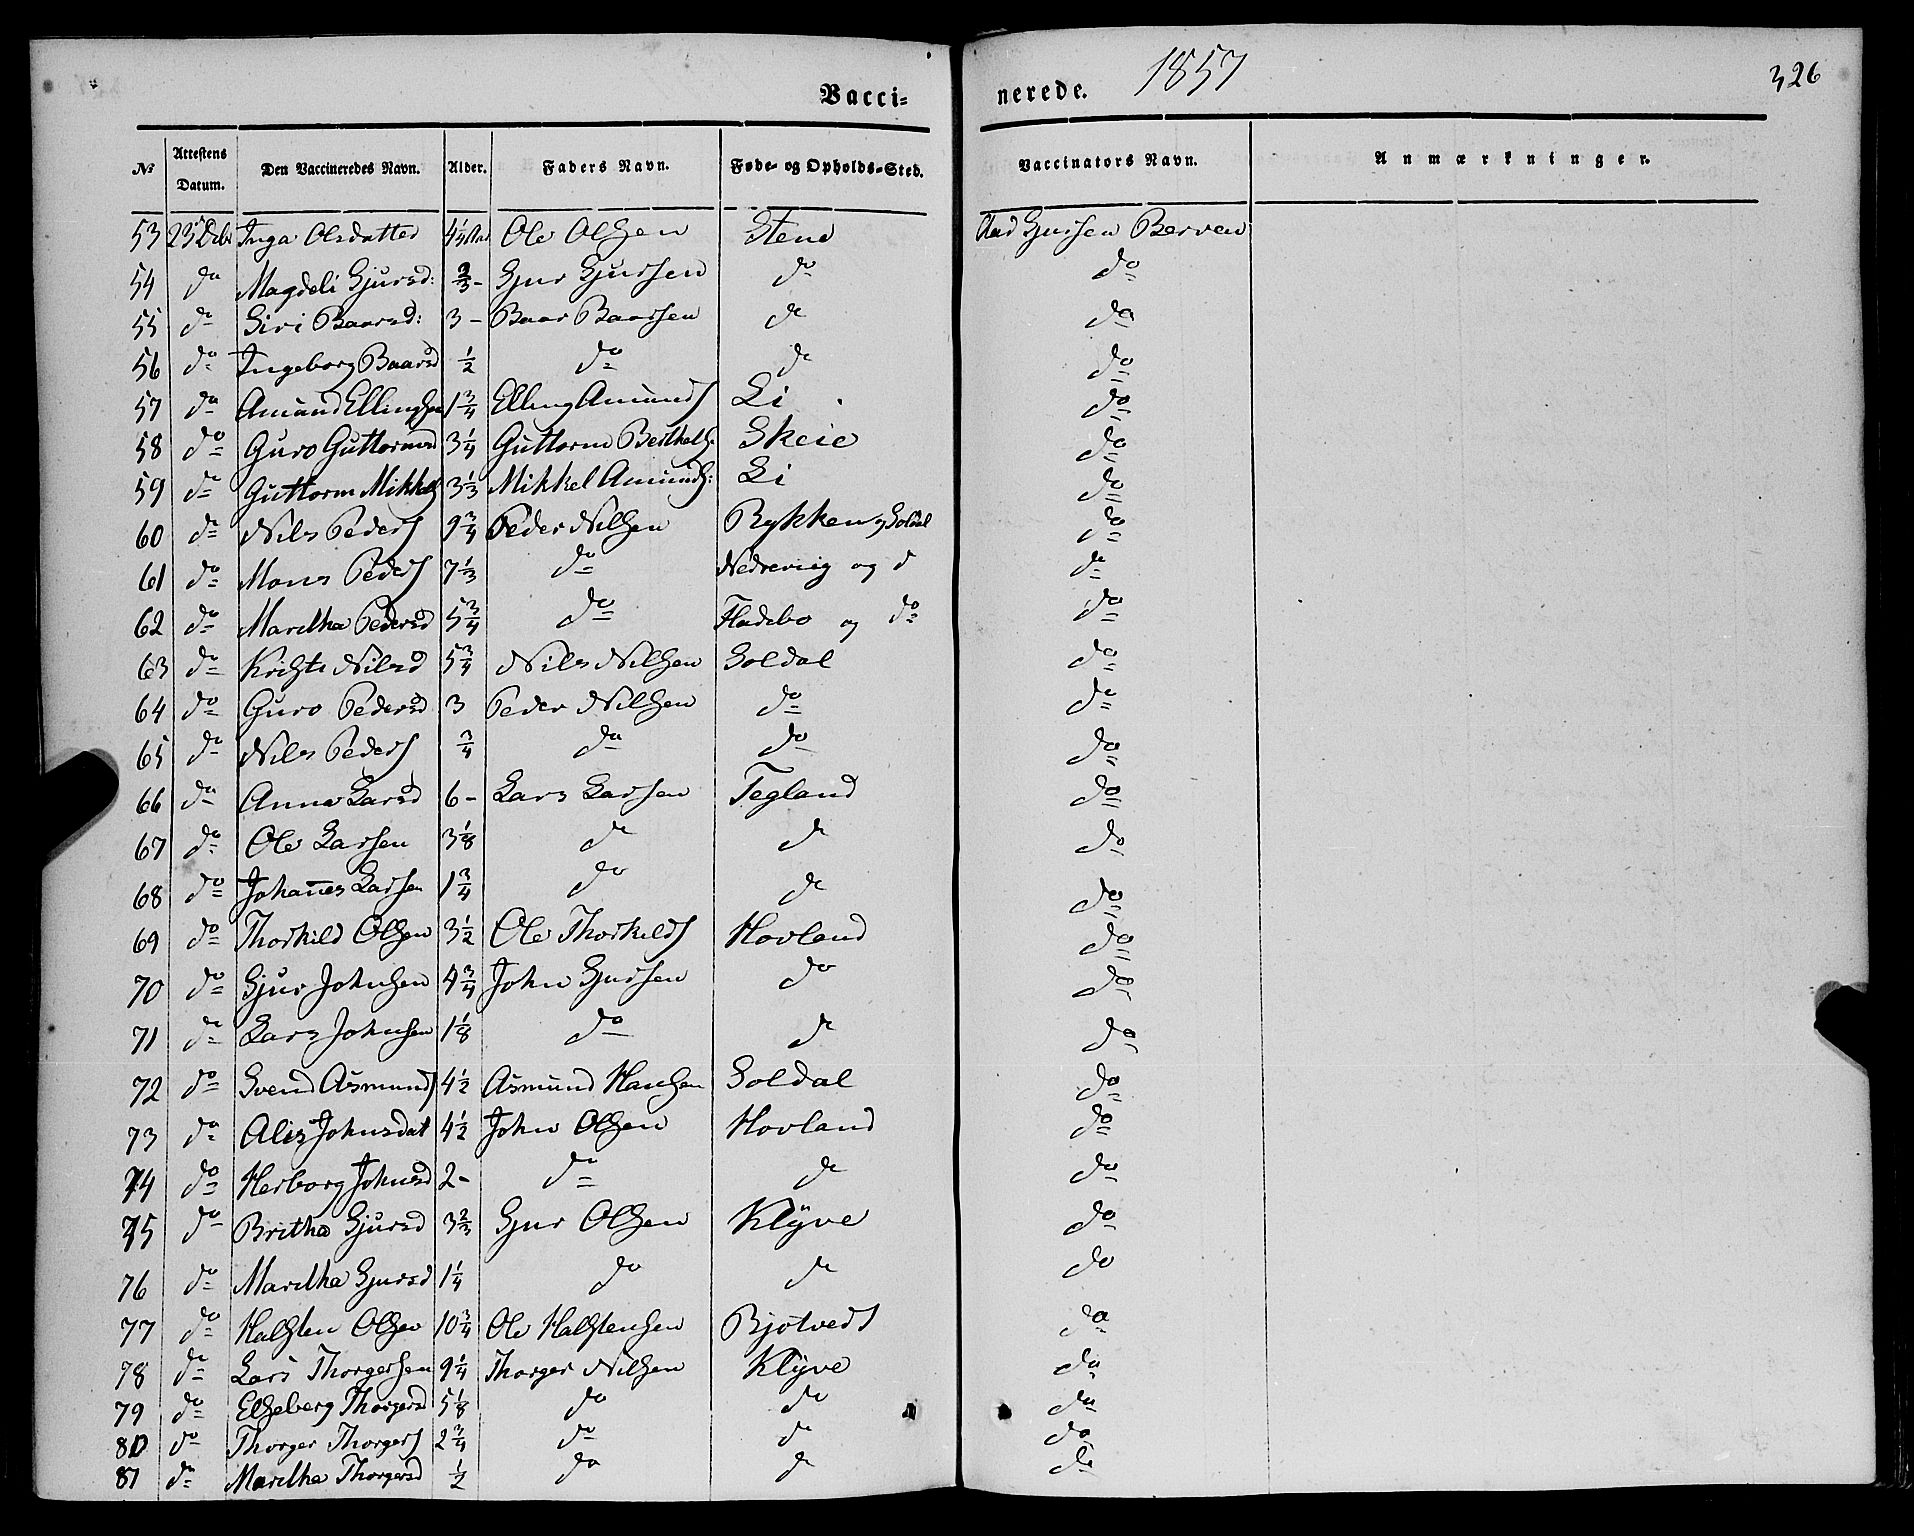 Vacci- nerede. 1857 326
№ Attestens Datum. Den Vaccineredes Navn. Alder. Faders Navn. Føde- og Opholds-Sted. Vaccinators Navn. Anmærkninger.
53 23 Inga Olsdatter 4 1/4 Aar Ole Olsen Stene Gjursen Berven
54 do Magdeli Gjursd: 2/3 - Gjur Gjursen do do
55 do Siri Baarsd: 3 - Baar Baarsen do do
56 do Ingeborg Baarsd 1/2 do do do
57 do Amund Ellingsen 1 3/4 Elling Amunds Li do
58 do Guro Guttormsd 3 1/4 Guttorm Berthels: Skeie do
59 do Guttorm Mikkels 3 1/3 Mikkel Amunds: Li do
60 do Nils Peders 9 3/4 Peder Nilsen Rykken og Soldal do
61 do Mons Peders 7 1/3 do Nedrevig og d do
62 do Maritha Pedersd 5 3/4 do Fladebo og do do
63 do Kriste Nilsd 5 3/4 Nils Nilsen Soldal do
64 do Guro Pedersd 3 Peder Nilsen do do
65 do Nils Peders 3/4 do do do
66 do Anna Larsd 6 - Lars Larsen Tegland do
67 do Ole Larsen 3 1/8 do do do
68 do Johannes Larsen 1 3/4 do do do
69 do Thorkild Olsen 3 1/2 Ole Thorkilds Hovland do
70 do Gjur Johnsen 4 3/4 John Gjursen do do
71 do Lars Johnsen 1 1/8 do do do
72 do Svend Asmunds 4 1/2 Asmund Hansen Soldal do
73 do Alis Johnsdat 4 1/2 John Olsen Hovland do
74 do Herborg Johnsd 2 - do do do
75 do Britha Gjursd 3 2/3 Gjur Olsen Klyve do
76 do Maritha Gjursd 1 1/4 do do do
77 do Halsten Olsen 10 3/4 Ole Halstensen Bjotvedt do
78 do Lars Thorgersen 9 1/4 Thorger Nilsen Klyve do
79 do Elseberg Thorgersd 5 1/8 do do do
80 do Thorger Thorgers 2 3/4 do do do
81 do Maritha Thorgersd 1/2 do do do